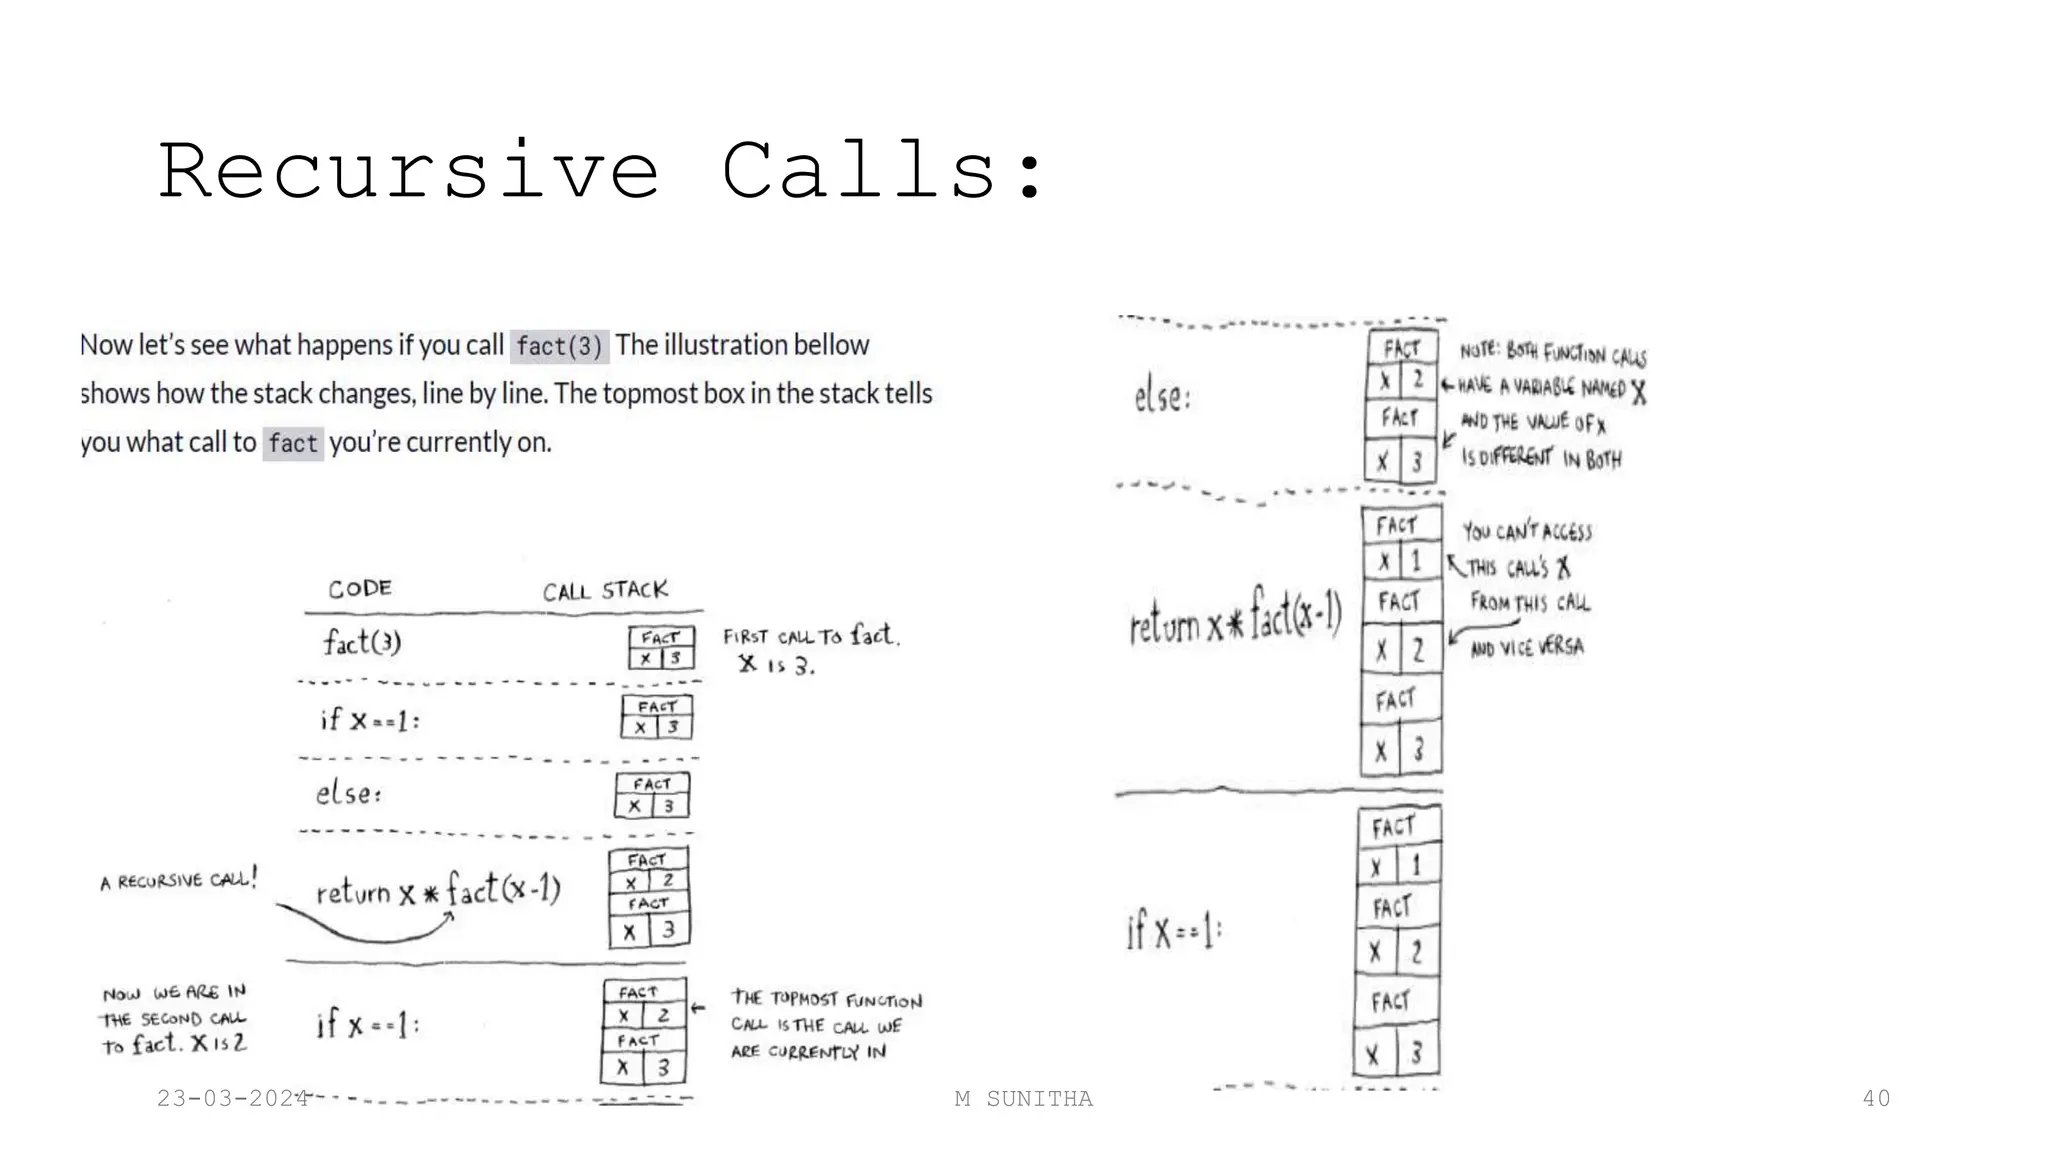 Recursive Calls:
Now let's see what happens if you call fact(3) The illustration bellow
shows how the stack changes, line by line. The topmost box in the stack tells
you what call to fact you're currently on.
CODE CALL STACK
fact(3)
FACT
X 3
FIRST CALL TO fact.
X IS 3.
if x==1:
FACT
X 3
else:
FACT
X 3
A RECURSIVE CALL!
return x * fact(x-1)
FACT
X 2
FACT
X 3
NOW WE ARE IN
THE SECOND CALL
TO fact. X IS 2
if x==1:
FACT
X 2
FACT
X 3
THE TOPMOST FUNCTION
CALL IS THE CALL WE
ARE CURRENTLY IN
else:
FACT
X 2
FACT
X 3
NOTE: BOTH FUNCTION CALLS
HAVE A VARIABLE NAMED X
AND THE VALUE OF X
IS DIFFERENT IN BOTH
return x * fact(x-1)
FACT
X 1
FACT
X 2
FACT
X 3
YOU CAN'T ACCESS
THIS CALL'S X
FROM THIS CALL
AND VICE VERSA
if x==1:
FACT
X 1
FACT
X 2
FACT
X 3
23-03-2024 M SUNITHA 40